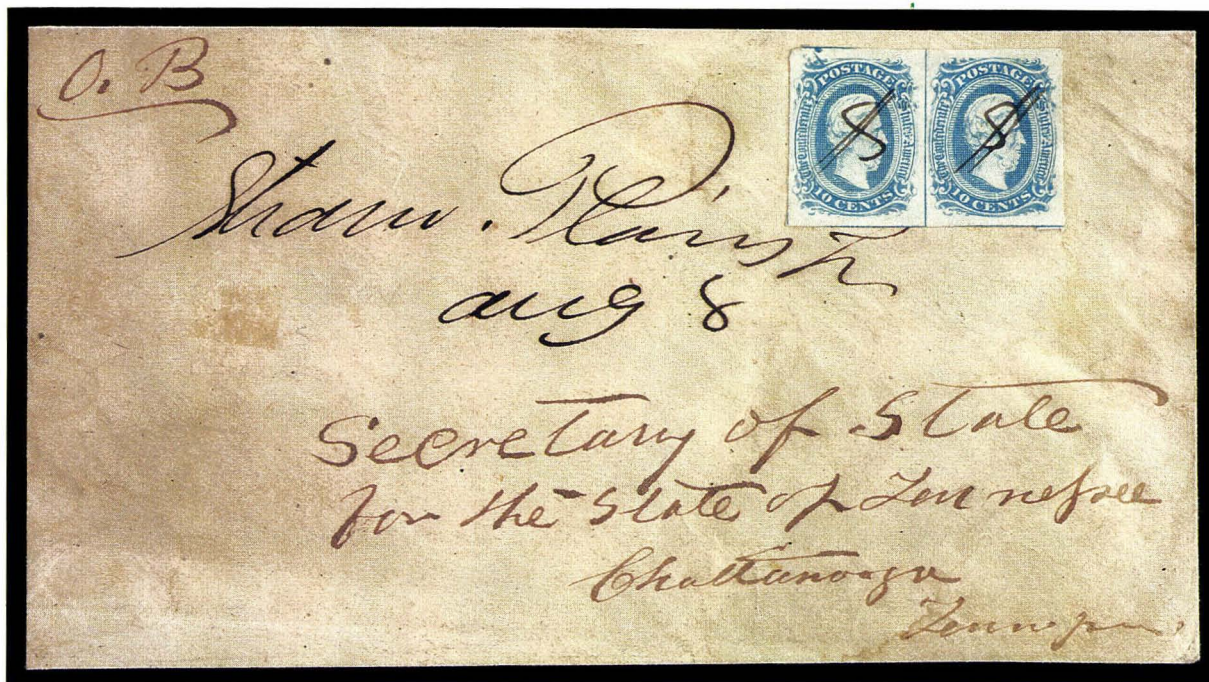 O. B
Straw. Plains Tn
aug 8
POSTAGE
The Confederate States of America
10 CENTS
8
POSTAGE
The Confederate States of America
10 CENTS
8
Secretary of State
for the State of Tennessee
Chattanooga
Tennessee